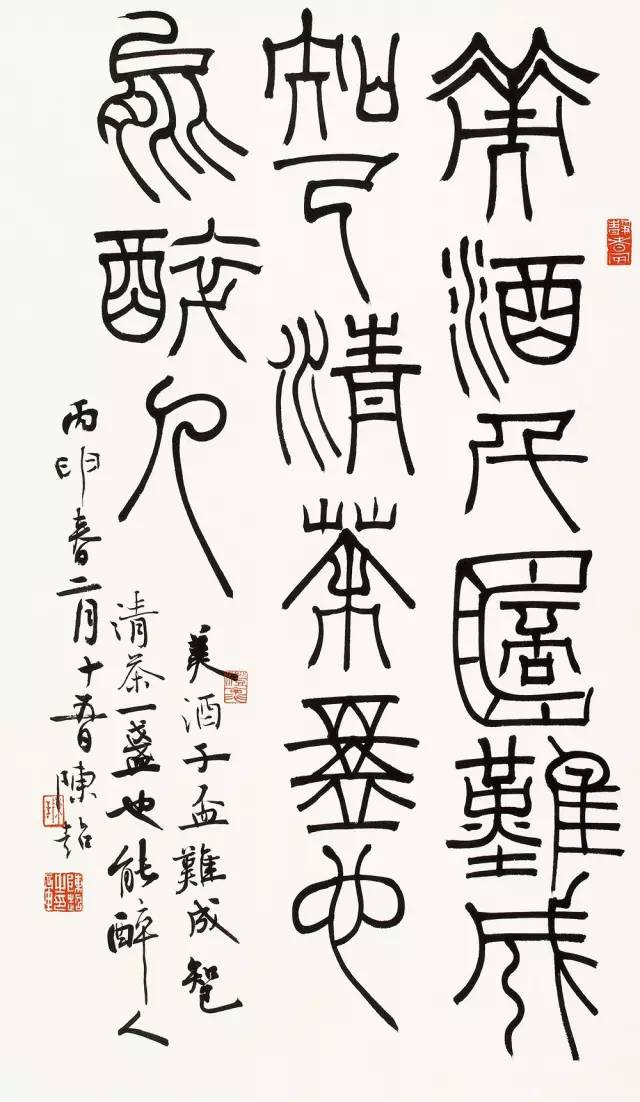 美酒千杯難成
知己清茶一盞也
能醉人
美酒千盃難成知己
清茶一盞也能醉人
丙申春二月十五日陳